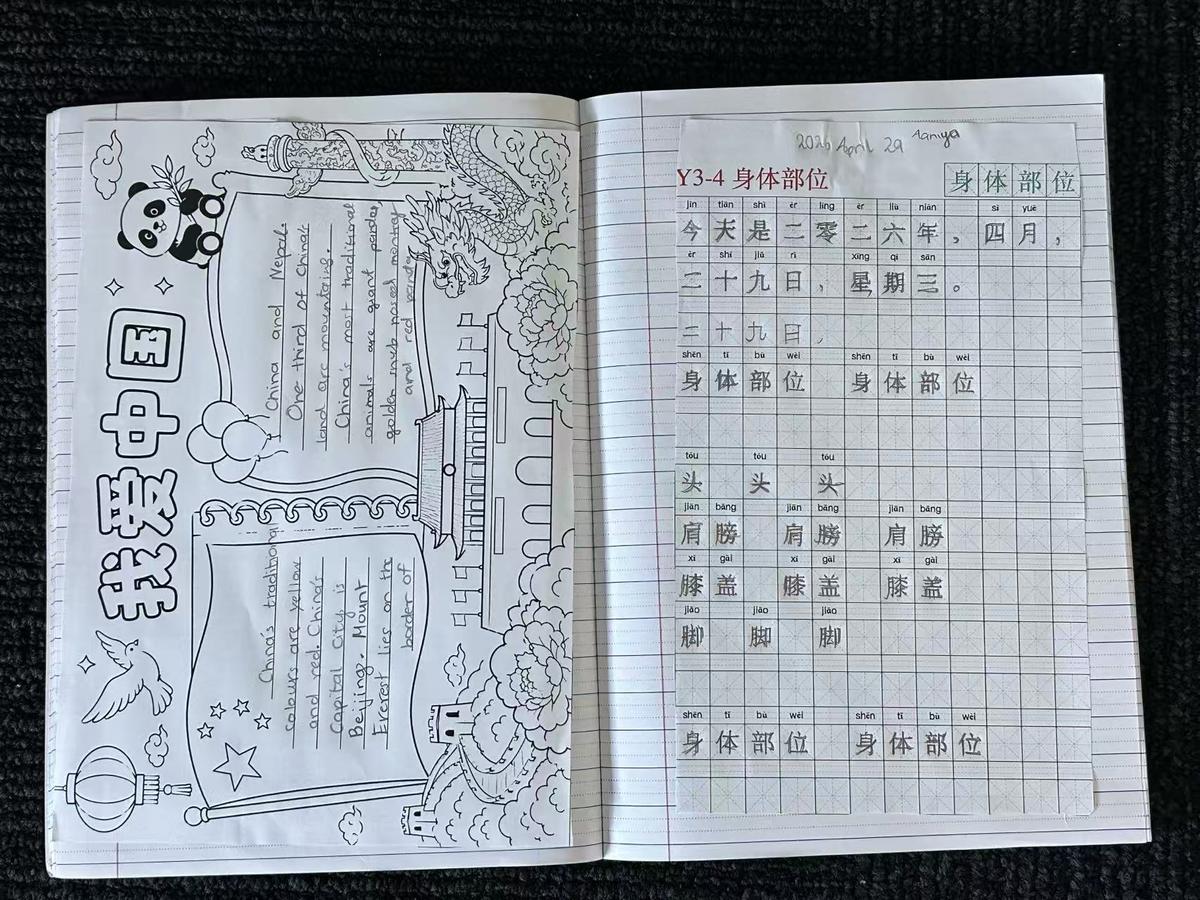 我爱中国
China's traditional
colours are yellow
and red. China's
Capital City is
Beijing. Mount
Everest lies on the
border of
China and Nepal.
One third of China's
land are mountains.
China's most traditional
animals are giant pandas,
golden snub nosed monkey
and red panda
2026 April 29 Aaniya
Y3-4 身体部位
身体部位
jīn tiān shì èr líng èr liù nián sì yuè
今天是二零二六年，四月，
èr shí jiǔ rì xīng qī sān
二十九日，星期三。
二十九日，
shēn tǐ bù wèi shēn tǐ bù wèi
身体部位 身体部位
tóu tóu tóu
头 头 头
jiān bǎng jiān bǎng jiān bǎng
肩膀 肩膀 肩膀
xī gài xī gài xī gài
膝盖 膝盖 膝盖
jiǎo jiǎo jiǎo
脚 脚 脚
shēn tǐ bù wèi shēn tǐ bù wèi
身体部位 身体部位